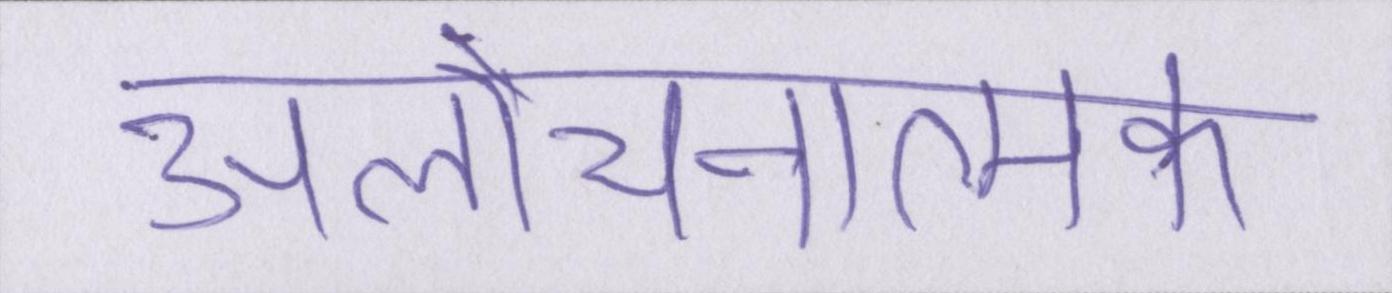 अलोचनात्मक